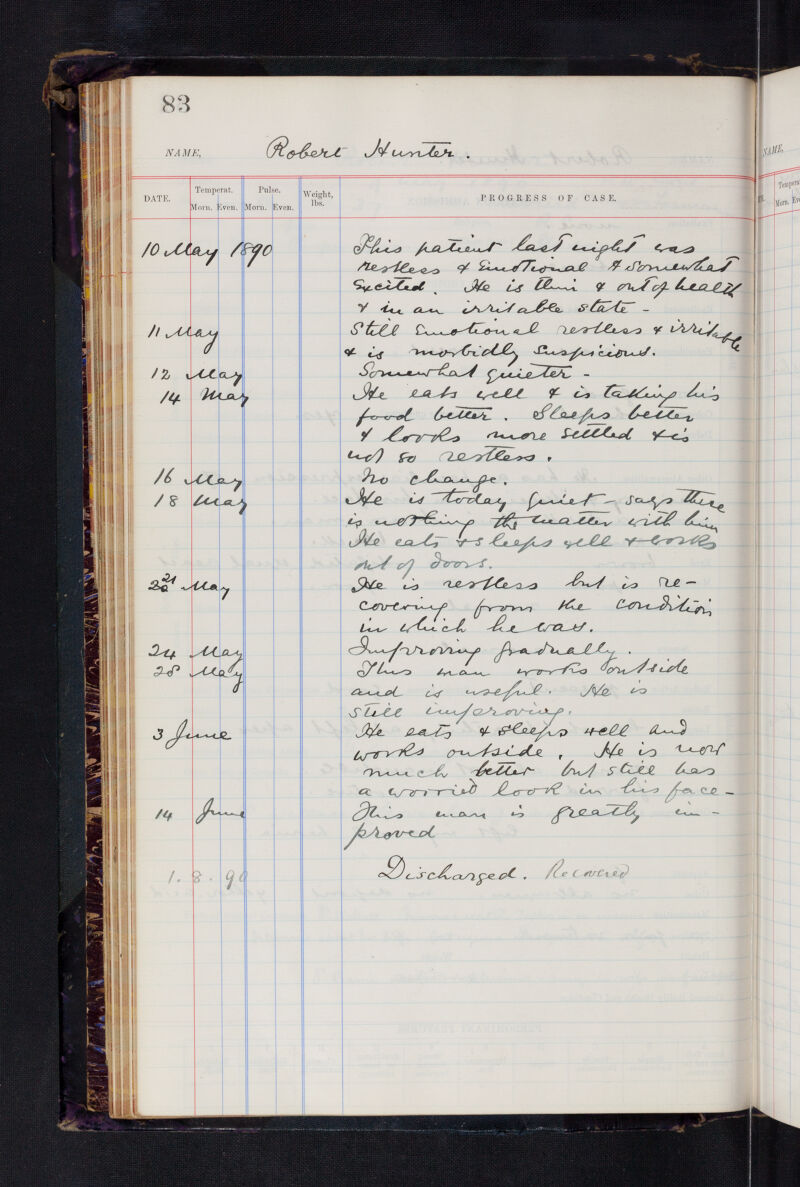 83
NAME, Robert Hunter.
DATE. Temperat. Pulse. Weight, lbs. PROGRESS OF CASE.
Morn. Even. Morn. Even.
10 May 1890 This patient last night was
restless & Emotional & Somewhat
Excited. He is thin & out of health
& in an irritable state -
11 May Still Emotional restless & irritable
& is morbidly Suspicious.
12 May Somewhat quieter -
14 May He eats well & is taking his
food better. Sleeps better
& looks more settled & is
not so restless.
16 May No change.
18 May He is today quiet - says there
is nothing the matter with him
He eats & sleeps well & works
out of doors.
21 May He is restless but is re-
covering from the condition
in which he was.
24 May Improving gradually.
28 May This man works outside
and is useful. He is
still improving.
3 June He eats & sleeps well and
works outside. He is now
much better but still has
a worried look in his face -
14 June This man is greatly im-
proved
1. 8. 90 Discharged. Recovered
NAME,
Temperat
Morn. Eve